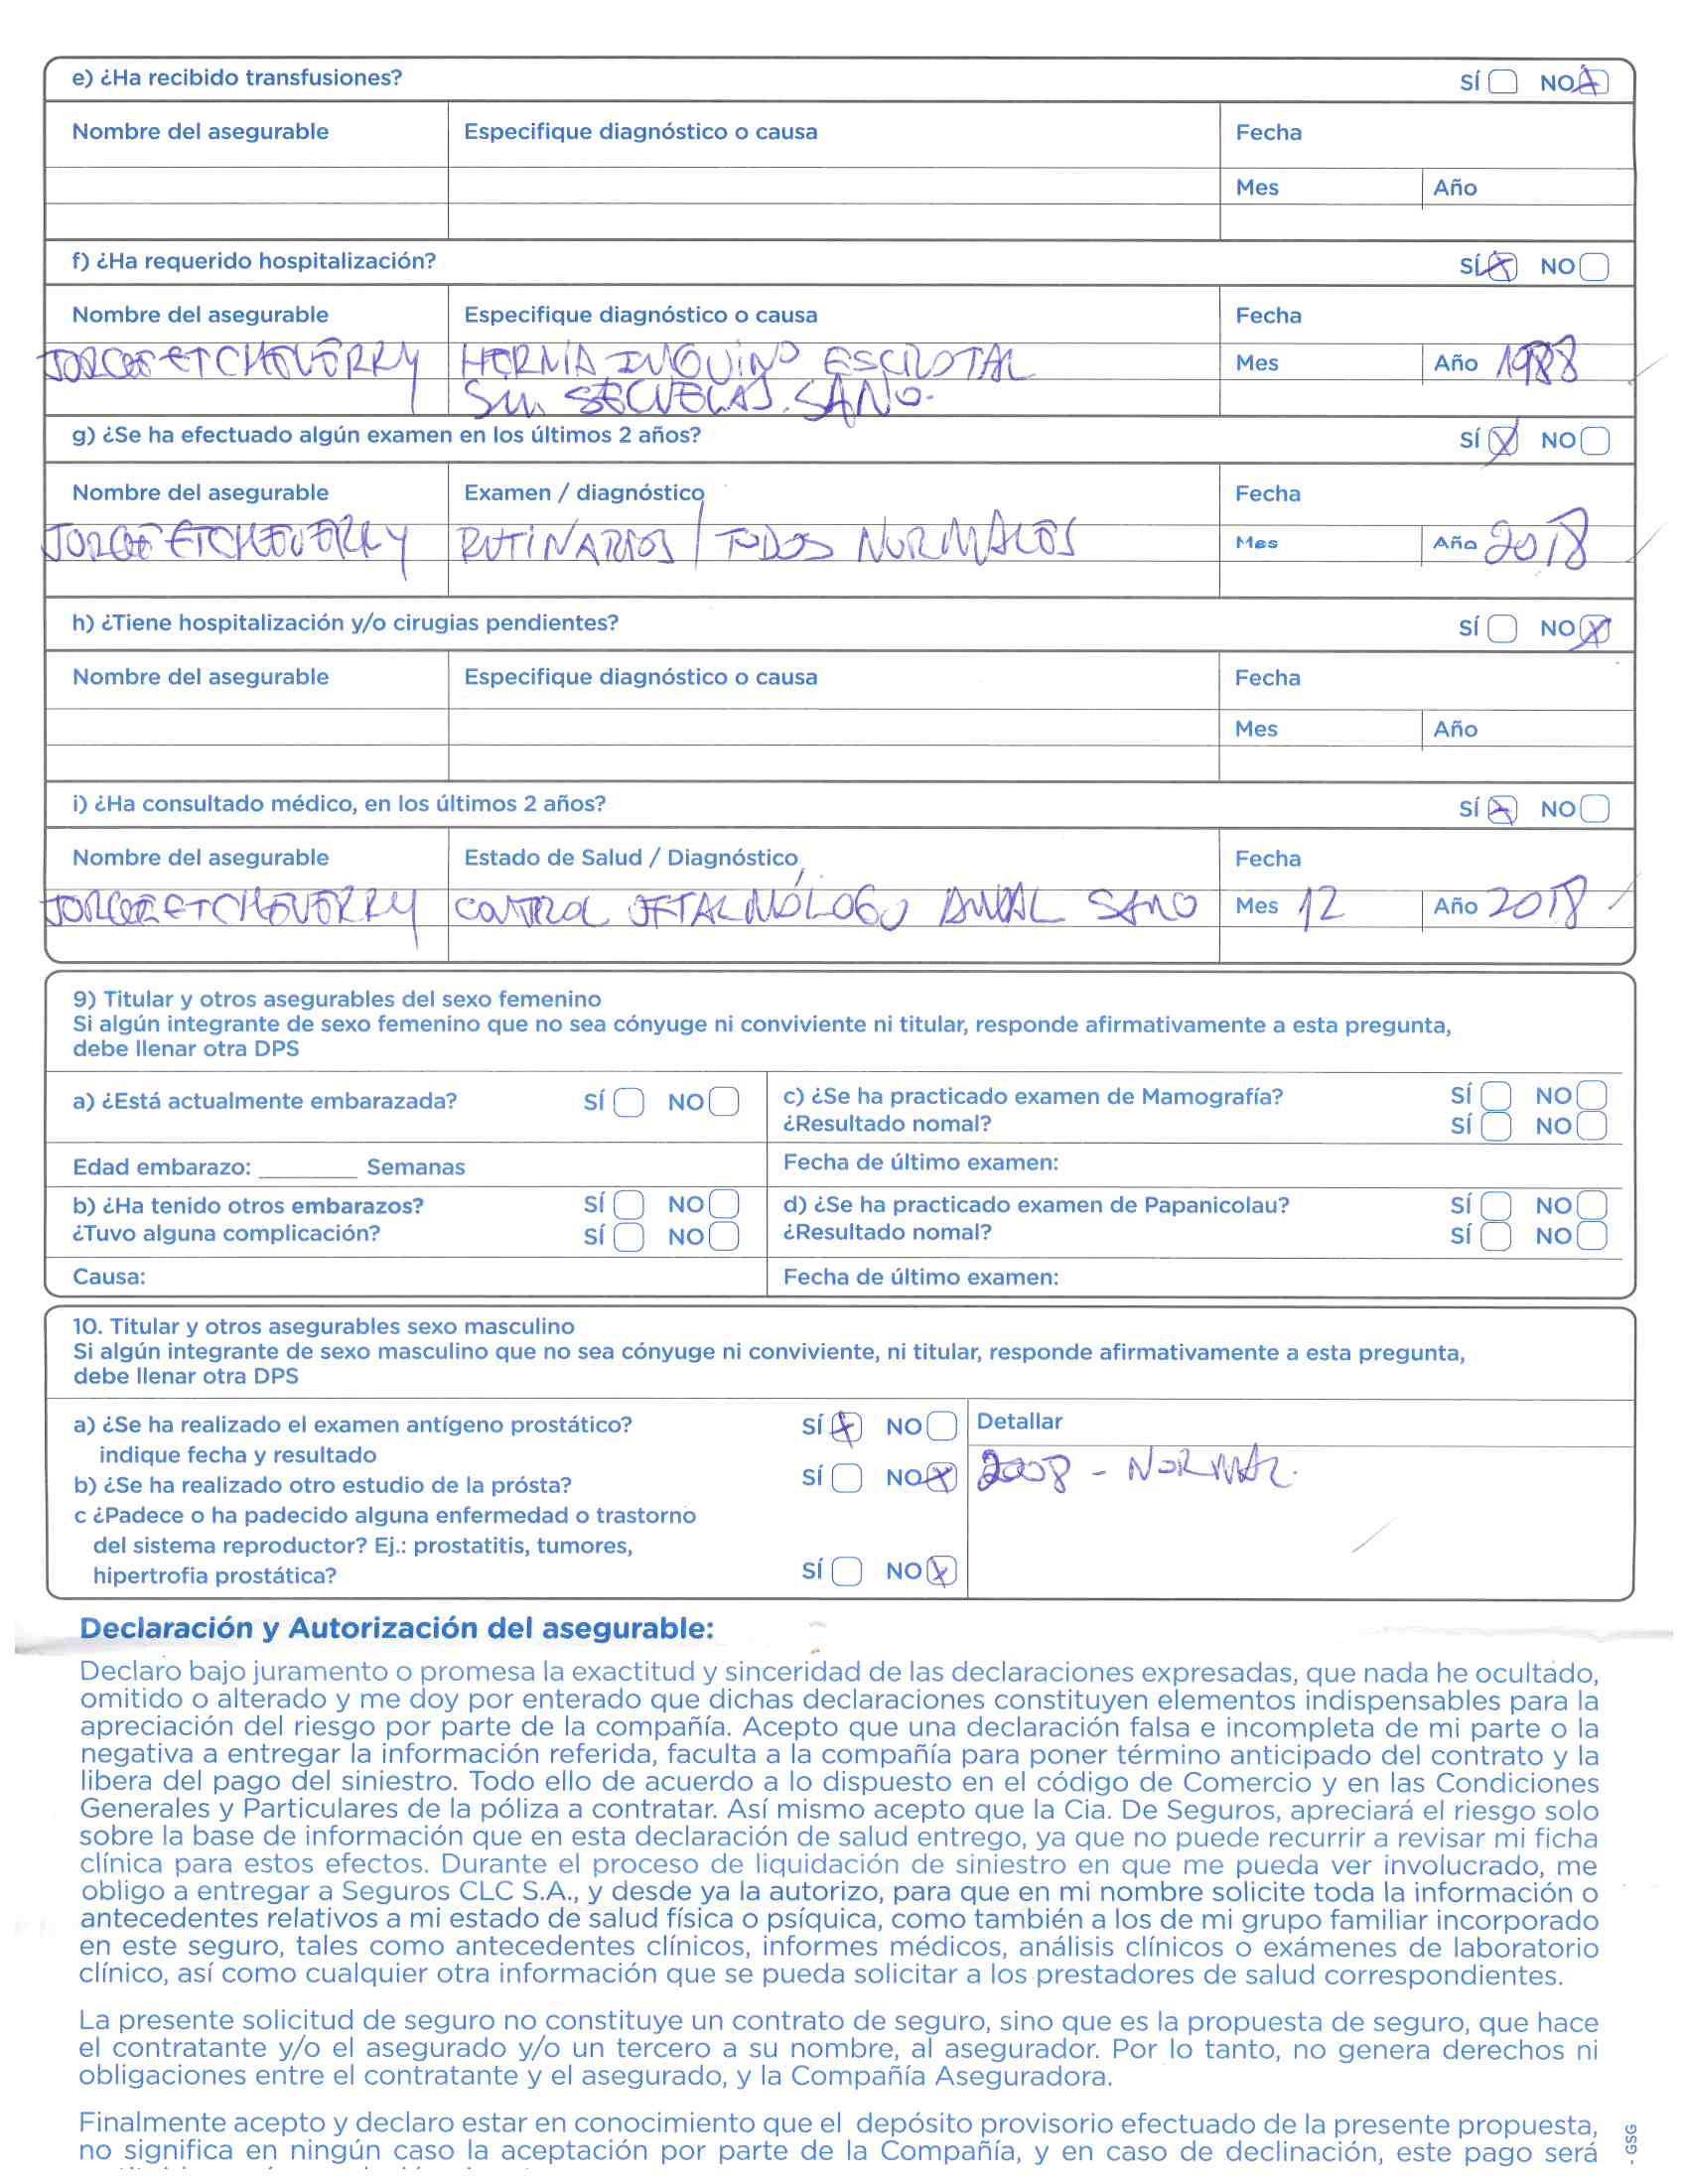 e) ¿Ha recibido transfusiones? SÍ NO
Nombre del asegurable Especifique diagnóstico o causa Fecha
Mes Año
f) ¿Ha requerido hospitalización? SÍ NO
Nombre del asegurable Especifique diagnóstico o causa Fecha
JORGE ETCHEVERRY HERNIA INGUINO ESCROTAL Mes Año 1988
SIN SECUELAS. SANO.
g) ¿Se ha efectuado algún examen en los últimos 2 años? SÍ NO
Nombre del asegurable Examen / diagnóstico Fecha
JORGE ETCHEVERRY RUTINARIOS / TODOS NORMALES Mes Año 2018
h) ¿Tiene hospitalización y/o cirugias pendientes? SÍ NO
Nombre del asegurable Especifique diagnóstico o causa Fecha
Mes Año
i) ¿Ha consultado médico, en los últimos 2 años? SÍ NO
Nombre del asegurable Estado de Salud / Diagnóstico Fecha
JORGE ETCHEVERRY CONTROL OFTALMÓLOGO ANUAL SANO Mes 12 Año 2018
9) Titular y otros asegurables del sexo femenino
Si algún integrante de sexo femenino que no sea cónyuge ni conviviente ni titular, responde afirmativamente a esta pregunta,
debe llenar otra DPS
a) ¿Está actualmente embarazada? SÍ NO
Edad embarazo: ________ Semanas
b) ¿Ha tenido otros embarazos? SÍ NO
¿Tuvo alguna complicación? SÍ NO
Causa:
c) ¿Se ha practicado examen de Mamografía? SÍ NO
¿Resultado nomal? SÍ NO
Fecha de último examen:
d) ¿Se ha practicado examen de Papanicolau? SÍ NO
¿Resultado nomal? SÍ NO
Fecha de último examen:
10. Titular y otros asegurables sexo masculino
Si algún integrante de sexo masculino que no sea cónyuge ni conviviente, ni titular, responde afirmativamente a esta pregunta,
debe llenar otra DPS
a) ¿Se ha realizado el examen antígeno prostático? SÍ NO
indique fecha y resultado
b) ¿Se ha realizado otro estudio de la prósta? SÍ NO
c ¿Padece o ha padecido alguna enfermedad o trastorno
del sistema reproductor? Ej.: prostatitis, tumores,
hipertrofia prostática? SÍ NO
Detallar
2008 - NORMAL.
Declaración y Autorización del asegurable:
Declaro bajo juramento o promesa la exactitud y sinceridad de las declaraciones expresadas, que nada he ocultado,
omitido o alterado y me doy por enterado que dichas declaraciones constituyen elementos indispensables para la
apreciación del riesgo por parte de la compañía. Acepto que una declaración falsa e incompleta de mi parte o la
negativa a entregar la información referida, faculta a la compañía para poner término anticipado del contrato y la
libera del pago del siniestro. Todo ello de acuerdo a lo dispuesto en el código de Comercio y en las Condiciones
Generales y Particulares de la póliza a contratar. Así mismo acepto que la Cia. De Seguros, apreciará el riesgo solo
sobre la base de información que en esta declaración de salud entrego, ya que no puede recurrir a revisar mi ficha
clínica para estos efectos. Durante el proceso de liquidación de siniestro en que me pueda ver involucrado, me
obligo a entregar a Seguros CLC S.A., y desde ya la autorizo, para que en mi nombre solicite toda la información o
antecedentes relativos a mi estado de salud física o psíquica, como también a los de mi grupo familiar incorporado
en este seguro, tales como antecedentes clínicos, informes médicos, análisis clínicos o exámenes de laboratorio
clínico, así como cualquier otra información que se pueda solicitar a los prestadores de salud correspondientes.
La presente solicitud de seguro no constituye un contrato de seguro, sino que es la propuesta de seguro, que hace
el contratante y/o el asegurado y/o un tercero a su nombre, al asegurador. Por lo tanto, no genera derechos ni
obligaciones entre el contratante y el asegurado, y la Compañía Aseguradora.
Finalmente acepto y declaro estar en conocimiento que el depósito provisorio efectuado de la presente propuesta,
no significa en ningún caso la aceptación por parte de la Compañía, y en caso de declinación, este pago será
- GSG